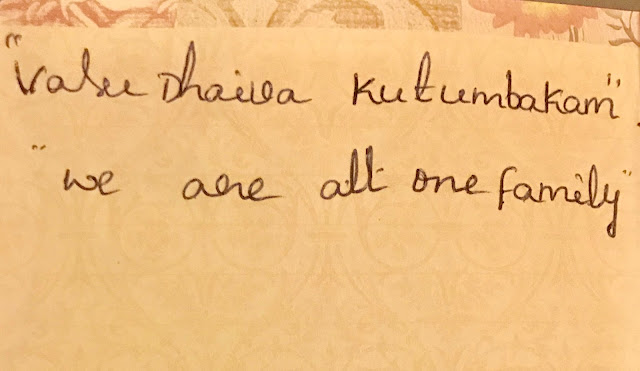 "Vasu Dhaiva Kutumbakam".
"we are all one family"